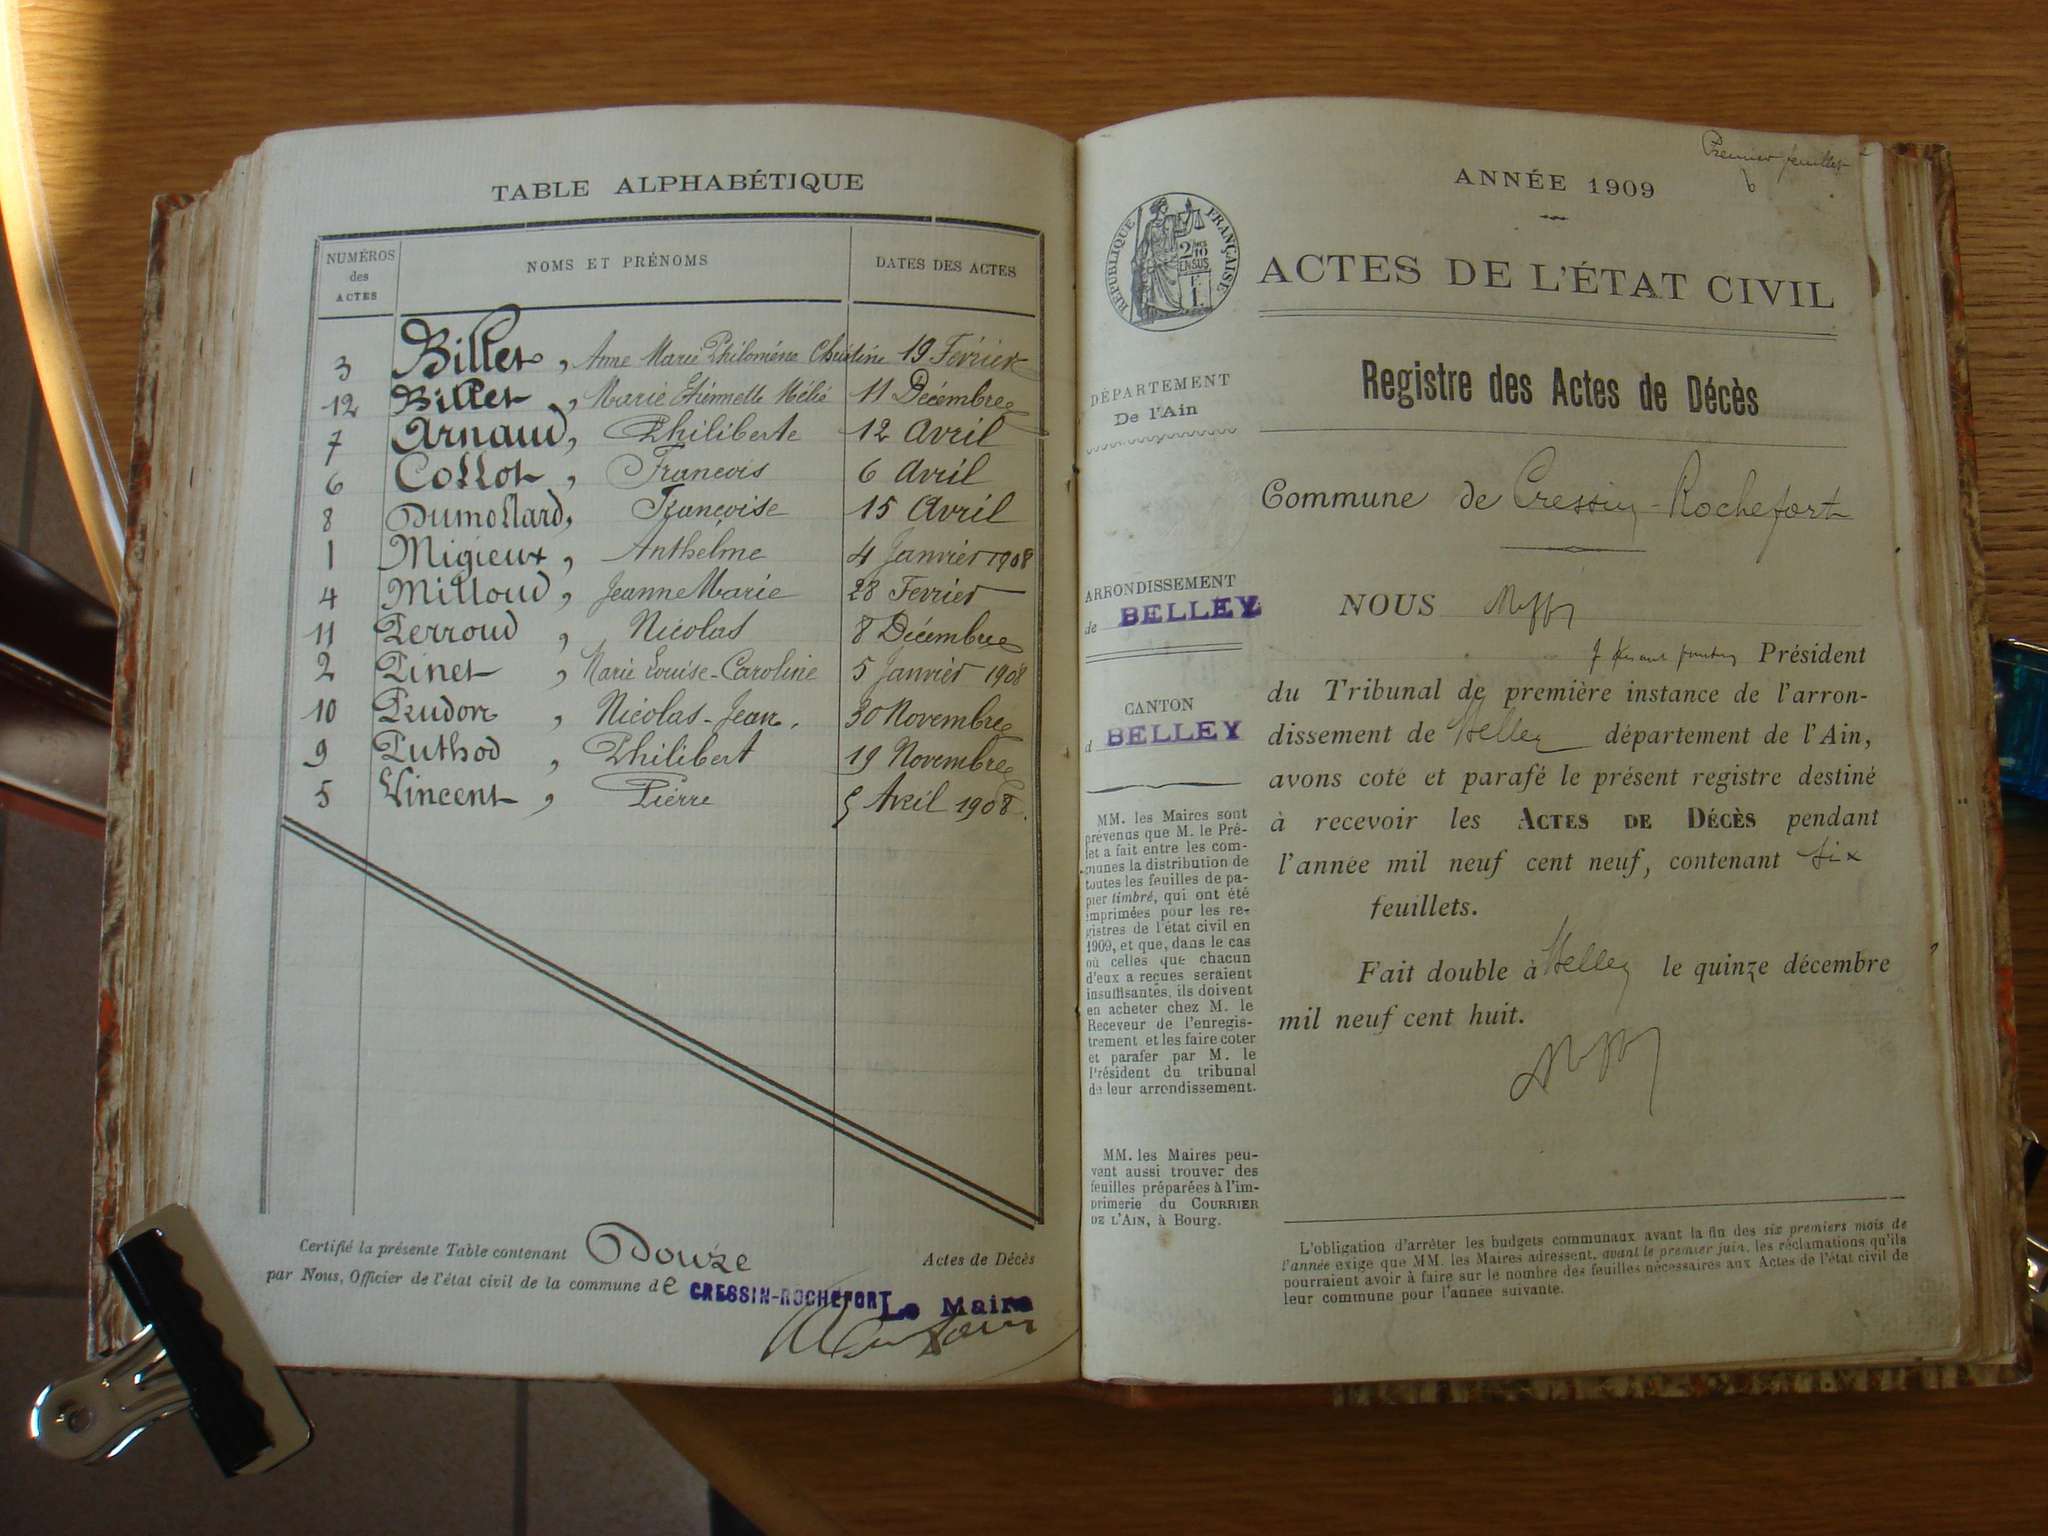 TABLE ALPHABÉTIQUE
NUMÉROS des ACTES NOMS ET PRÉNOMS DATES DES ACTES
3 Billet, Anne Marie Philomène Christine 19 Fevrier
12 Billet, Marie Etiennette Mélie 11 Décembre
7 Arnaud, Philiberte 12 Avril
6 Collot, Francois 6 Avril
8 Dumollard, Francoise 15 Avril
1 Migieux, Anthelme 4 Janvier 1908
4 Milloud, Jeanne Marie 28 Fevrier
11 Perroud, Nicolas 8 Décembre
2 Pinet, Marie Louise-Caroline 5 Janvier 1908
10 Prudon, Nicolas-Jean. 30 Novembre
9 Puthod, Philibert 19 Novembre
5 Vincent, Pierre 5 Avril 1908.
Certifié la présente Table contenant Douze Actes de Décès
par Nous, Officier de l'état civil de la commune de CRESSIN-ROCHEFORT
Le Maire
Premier feuillet
ANNÉE 1909
RÉPUBLIQUE FRANÇAISE
2/10 EN SUS
1 F
ACTES DE L'ÉTAT CIVIL
Registre des Actes de Décès
DÉPARTEMENT
De l'Ain
Commune de Cressin-Rochefort
ARRONDISSEMENT
de BELLEY
CANTON
d BELLEY
MM. les Maires sont
prévenus que M. le Pré-
fet a fait entre les com-
munes la distribution de
toutes les feuilles de pa-
pier timbré, qui ont été
imprimées pour les re-
gistres de l'état civil en
1909, et que, dans le cas
où celles que chacun
d'eux a reçues seraient
insuffisantes, ils doivent
en acheter chez M. le
Receveur de l'enregis-
trement et les faire coter
et parafer par M. le
Président du tribunal
de leur arrondissement.
MM. les Maires peu-
vent aussi trouver des
feuilles préparées à l'im-
primerie du COURRIER
DE L'AIN, à Bourg.
NOUS
Président
du Tribunal de première instance de l'arron-
dissement de Belley département de l'Ain,
avons coté et parafé le présent registre destiné
à recevoir les ACTES DE DÉCÈS pendant
l'année mil neuf cent neuf, contenant six
feuillets.
Fait double à Belley le quinze décembre
mil neuf cent huit.
L'obligation d'arrêter les budgets communaux avant la fin des six premiers mois de
l'année exige que MM. les Maires adressent, avant le premier juin, les réclamations qu'ils
pourraient avoir à faire sur le nombre des feuilles nécessaires aux Actes de l'état civil de
leur commune pour l'année suivante.